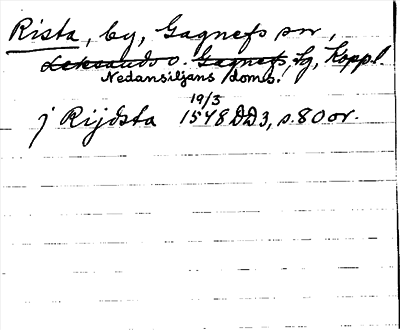 Rista, by, Gagnefs sn,
Leksands o. Gagnefs, tg, Koppl.
Nedansiljans doms.
19/3
j Rijdsta 1548 DD3, s. 80 or.